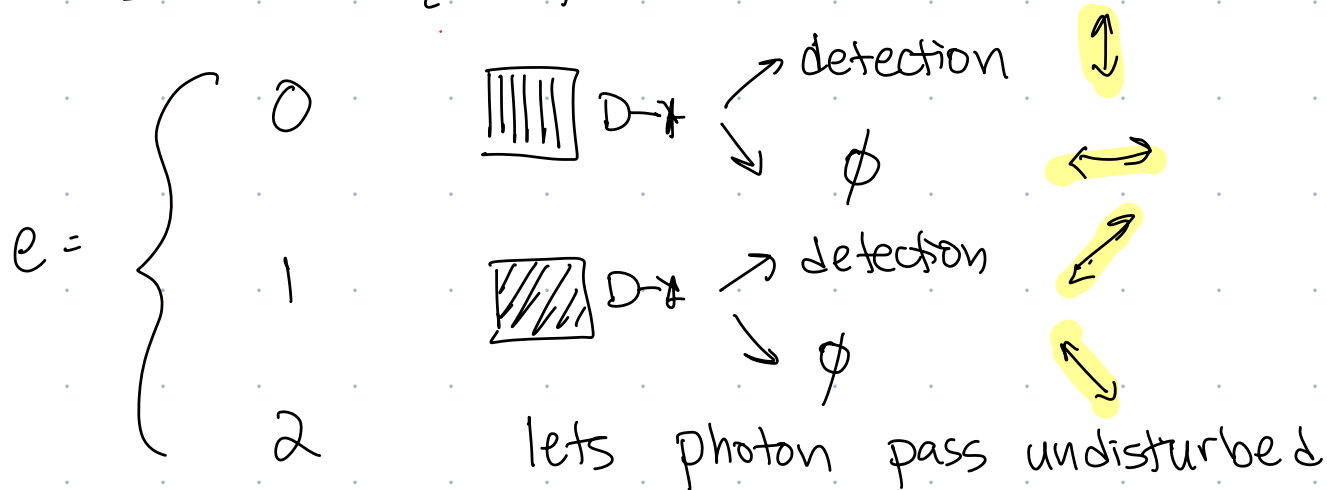 0 D detection ↕
∅ ↔
e = {
1 D detection ⤢
∅ ⤡
2 lets photon pass undisturbed